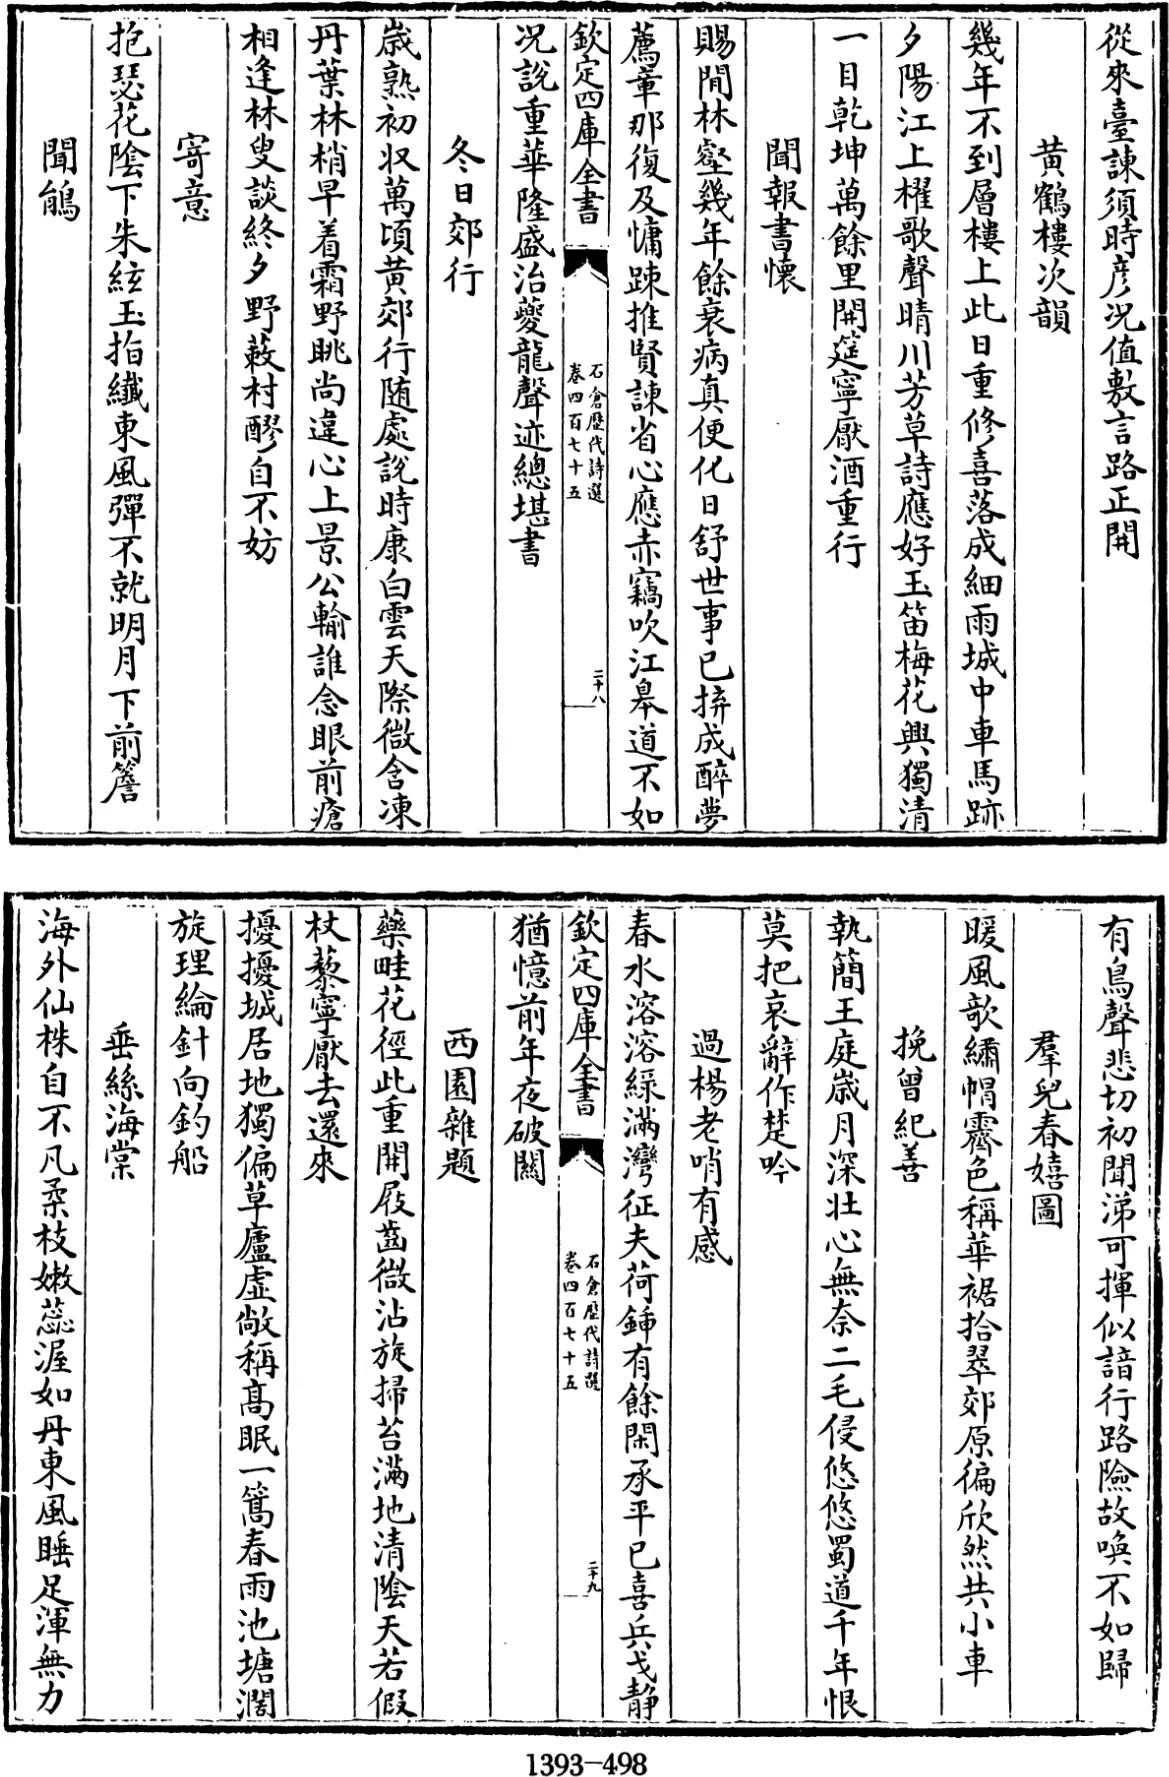 從來臺諫須時彦况值敷言路正開
黄鶴樓次韻
幾年不到層樓上此日重修喜落成細雨城中車馬跡
夕陽江上櫂歌聲晴川芳草詩應好玉笛梅花興獨清
一目乾坤萬餘里開筵寧厭酒重行
聞報書懷
賜閒林壑幾年餘衰病真便化日舒世事已拚成醉夢
薦章那復及慵踈推賢諫省心應赤竊吹江皋道不如
欽定四庫全書
石倉歷代詩選
卷四百七十五
二十八
况說重華隆盛治夔龍聲迹總堪書
冬日郊行
歳熟初収萬頃黄郊行随處說時康白雲天際微含凍
丹葉林梢早着霜野眺尚違心上景公輸誰念眼前瘡
相逢林叟談終夕野蔌村醪自不妨
寄意
抱瑟花陰下朱絃玉指纖東風彈不就明月下前簷
聞鵑
有鳥聲悲切初聞涕可揮似諳行路險故喚不如歸
羣兒春嬉圖
暖風歌繡帽霽色稱華裾拾翠郊原徧欣然共小車
挽曾紀善
執簡王庭歳月深壯心無奈二毛侵悠悠蜀道千年恨
莫把哀辭作楚吟
過楊老哨有感
春水溶溶緑滿灣征夫荷鍤有餘閑承平已喜兵戈静
欽定四庫全書
石倉歷代詩選
卷四百七十五
二十九
猶憶前年夜破關
西園雜題
藥畦花徑此重開屐齒微沾旋掃苔滿地清陰天若假
杖藜寧厭去還來
擾擾城居地獨偏草廬虚敞稱髙眠一篙春雨池塘濶
旋理綸針向釣船
垂絲海棠
海外仙株自不凡柔枝嫩蕊渥如丹東風睡足渾無力
1393-498